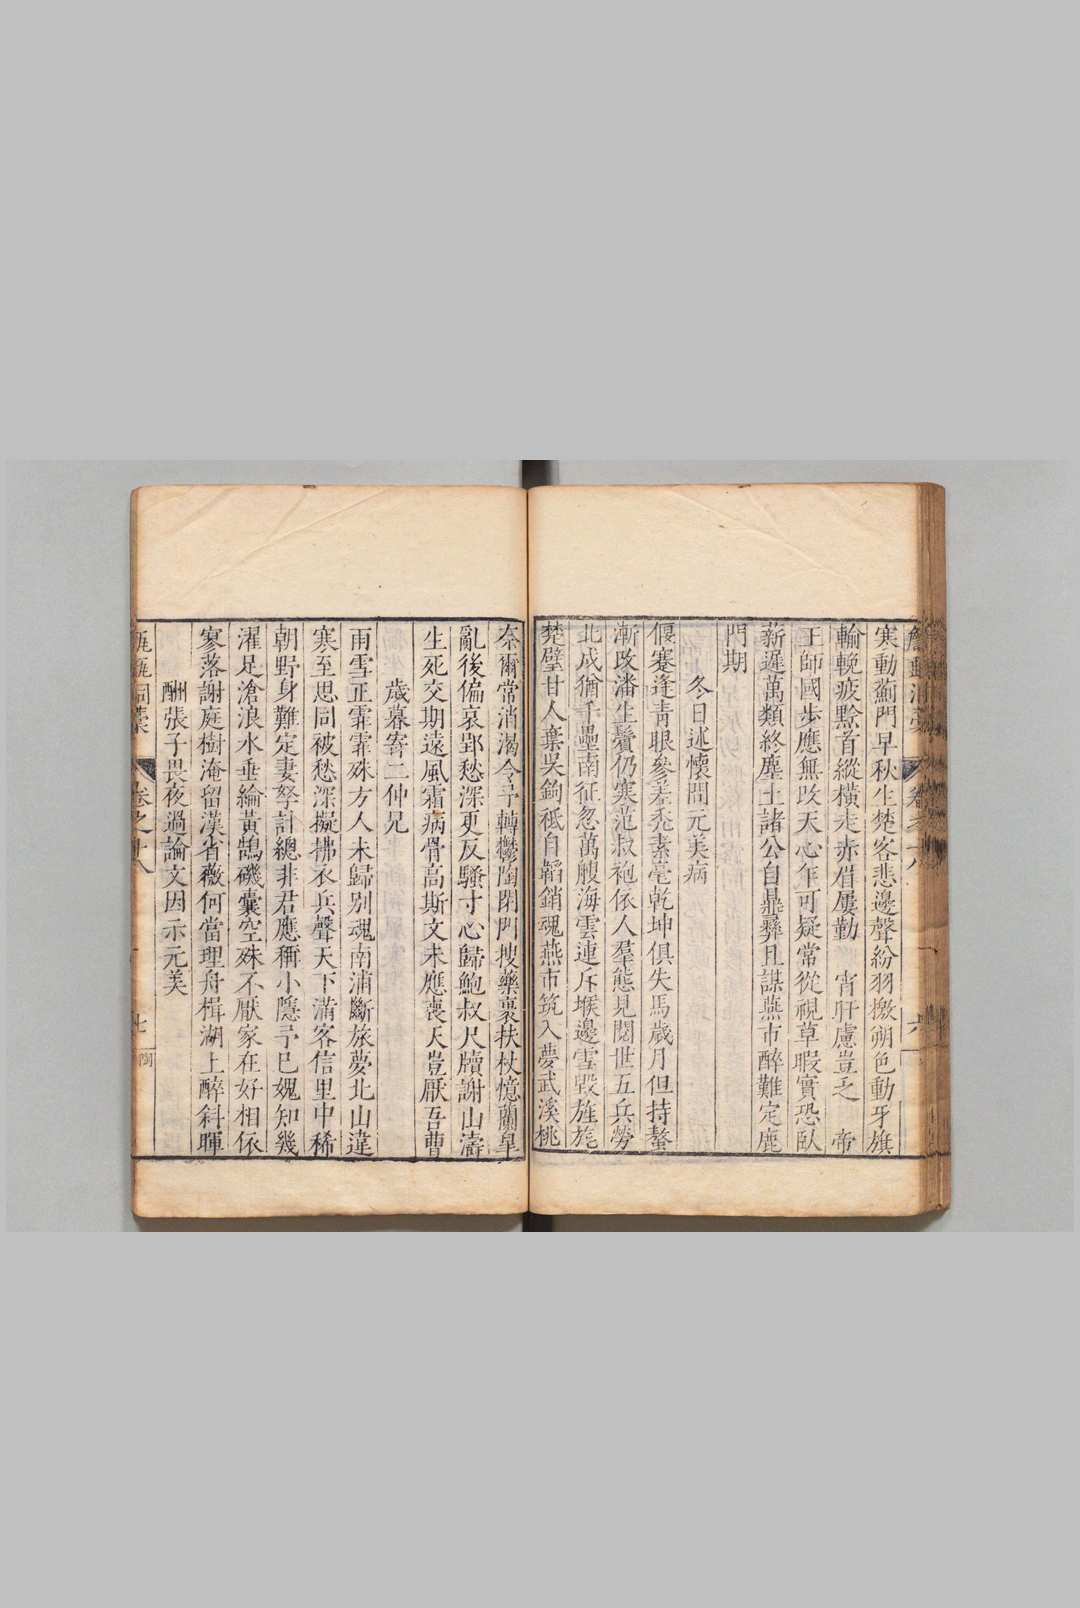 寒動薊門早秋生楚客悲邊聲紛羽檄朔色動牙旗
輸輓疲黔首縱橫走赤眉屢勤　宵旰慮豈乏　帝
王師國步應無改天心乍可疑常從視草暇實恐臥
薪遲萬類終塵土諸公自鼎彝且謀燕市醉難定鹿
門期
冬日述懷問元美病
偃蹇逢青眼參差禿素毫乾坤俱失馬歲月但持螯
漸改潘生鬢仍寒范叔袍依人羣態見閱世五兵勞
北成猶千壘南征忽萬艘海雲連斥堠邊雪毀旌旄
楚璧甘人棄吳鉤祗自韜銷魂燕市筑入夢武溪桃
奈爾常消渴令予轉鬱陶閉門搜藥裹扶杖憶蘭皋
亂後偏哀郢愁深更反騷寸心歸鮑叔尺牘謝山濤
生死交期遠風霜病骨高斯文未應喪天豈厭吾曹
歲暮寄二仲兄
雨雪正霏霏殊方人未歸別魂南浦斷旅夢北山違
寒至思同被愁深擬拂衣兵聲天下滿客信里中稀
朝野身難定妻孥計總非君應稱小隱予已媿知幾
濯足滄浪水垂綸黃鵠磯囊空殊不厭家在好相依
寥落謝庭樹淹留漢省薇何當理舟楫湖上醉斜暉
酬張子畏夜過論文因示元美
甔甀洞藁
卷之十八
七